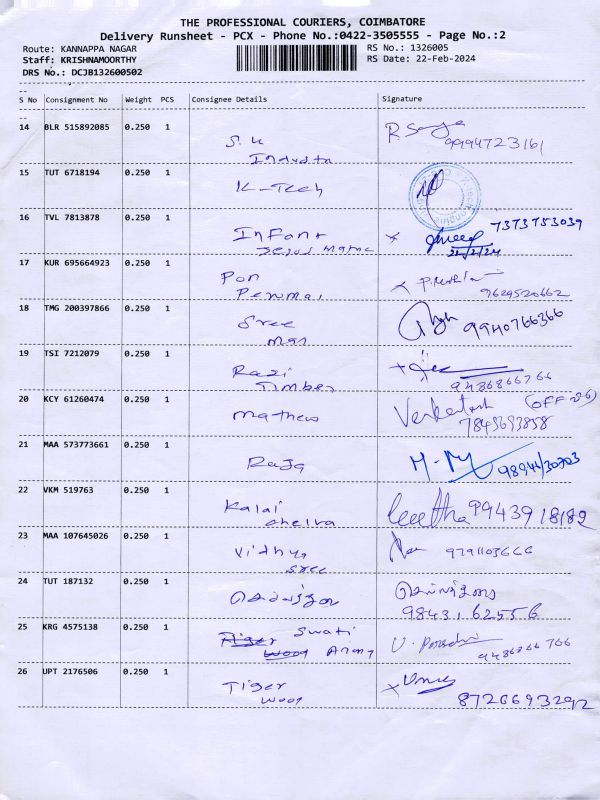 THE PROFESSIONAL COURIERS, COIMBATORE
Delivery Runsheet - PCX - Phone No.:0422-3505555 - Page No.:2
Route: KANNAPPA NAGAR RS No.: 1326005
Staff: KRISHNAMOORTHY RS Date: 22-Feb-2024
DRS No.: DCJB132600502
S No Consignment No Weight PCS Consignee Details Signature
14 BLR 515892085 0.250 1
S.K
9994723161
15 TUT 6718194 0.250 1 K-Tech
16 TVL 7813878 0.250 1 Infant 7373753039
22/2/24
17 KUR 695664923 0.250 1 Pon
Perumal 9629520662
18 TMG 200397866 0.250 1 Sree 9940766366
19 TSI 7212079 0.250 1
Timber 9486866766
20 KCY 61260474 0.250 1 Mathews Venkatesh
21 MAA 573773661 0.250 1 Raja
22 VKM 519763 0.250 1 Kalai Geetha 9943918182
chelva
23 MAA 107645026 0.250 1 Vidhya
sree
24 TUT 187132 0.250 1
98431 62556
25 KRG 4575138 0.250 1 Tiger Swati
Wood
26 UPT 2176506 0.250 1 Tiger
Wood 8726693292